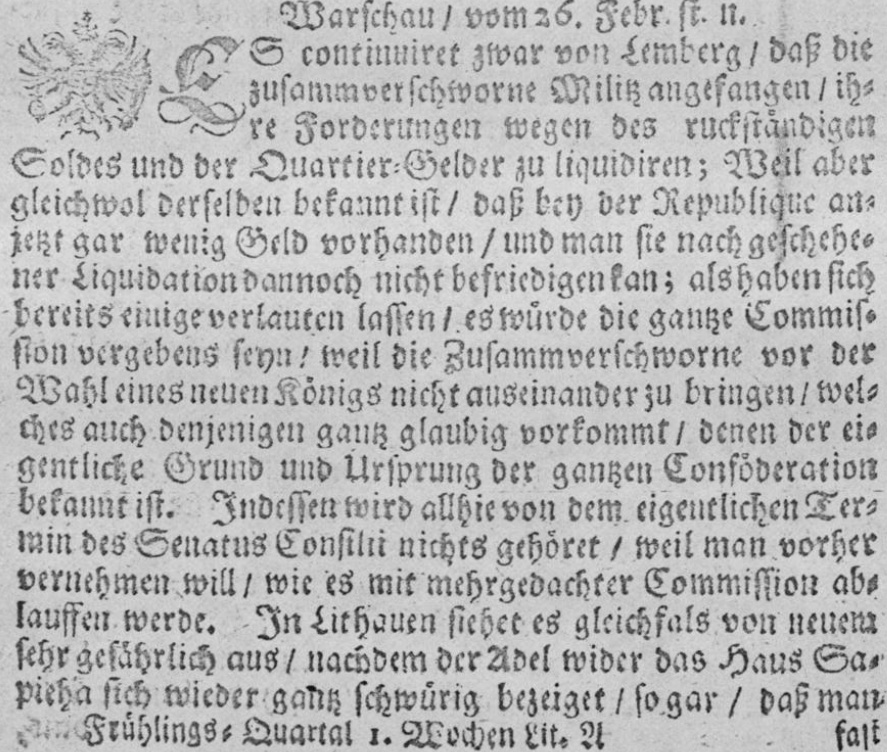 Warschau / vom 26. Febr. st. n.
ES continuiret zwar von Lemberg / daß die
zusammverschworne Militz angefangen / ih-
re Forderungen wegen des ruckständigen
Soldes und der Quartier-Gelder zu liquidiren; Weil aber
gleichwol derselden bekannt ist / daß bey der Republique an-
jetzt gar wenig Geld vorhanden / und man sie nach geschehe-
ner Liquidation dannoch nicht befriedigen kan; als haben sich
bereits einige verlauten lassen / es würde die gantze Commis-
sion vergebens seyn / weil die Zusammverschworne vor der
Wahl eines neuen Königs nicht auseinander zu bringen / wel-
ches auch denjenigen gantz glaubig vorkommt / denen der ei-
gentliche Grund und Ursprung der gantzen Conföderation
bekannt ist. Indessen wird allhie von dem eigentlichen Ter-
min des Senatus Consilii nichts gehöret / weil man vorher
vernehmen will / wie es mit mehrgedachter Commission ab-
lauffen werde. In Lithauen siehet es gleichfals von neuem
sehr gefährlich aus / nachdem der Adel wider das Haus Sa-
pieha sich wieder gantz schwürig bezeiget / so gar / daß man
Frühlings-Quartal 1. Wochen Lit. A fast